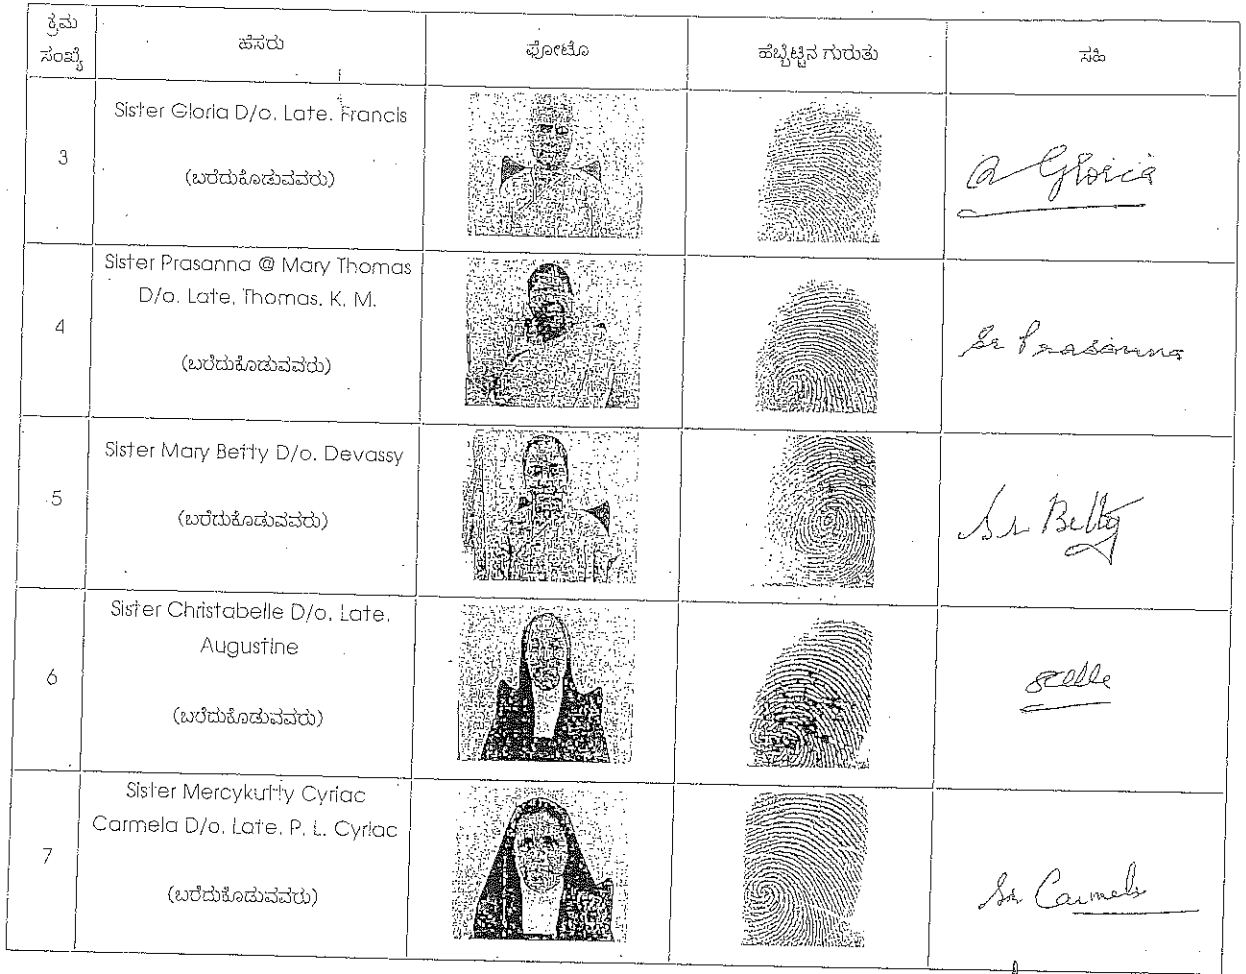 ಕ್ರಮ
ಸಂಖ್ಯೆ
ಹೆಸರು
ಫೋಟೊ
ಹೆಬ್ಬೆಟ್ಟಿನ ಗುರುತು
ಸಹಿ
3
Sister Gloria D/o. Late. Francis
(ಬರೆದುಕೊಡುವವರು)
Gloria
4
Sister Prasanna @ Mary Thomas
D/o. Late. Thomas. K. M.
(ಬರೆದುಕೊಡುವವರು)
Sr Prasanna
5
Sister Mary Betty D/o. Devassy
(ಬರೆದುಕೊಡುವವರು)
Sr Betty
6
Sister Christabelle D/o. Late.
Augustine
(ಬರೆದುಕೊಡುವವರು)
7
Sister Mercykutty Cyriac
Carmela D/o. Late. P. L. Cyriac
(ಬರೆದುಕೊಡುವವರು)
Sr Carmela